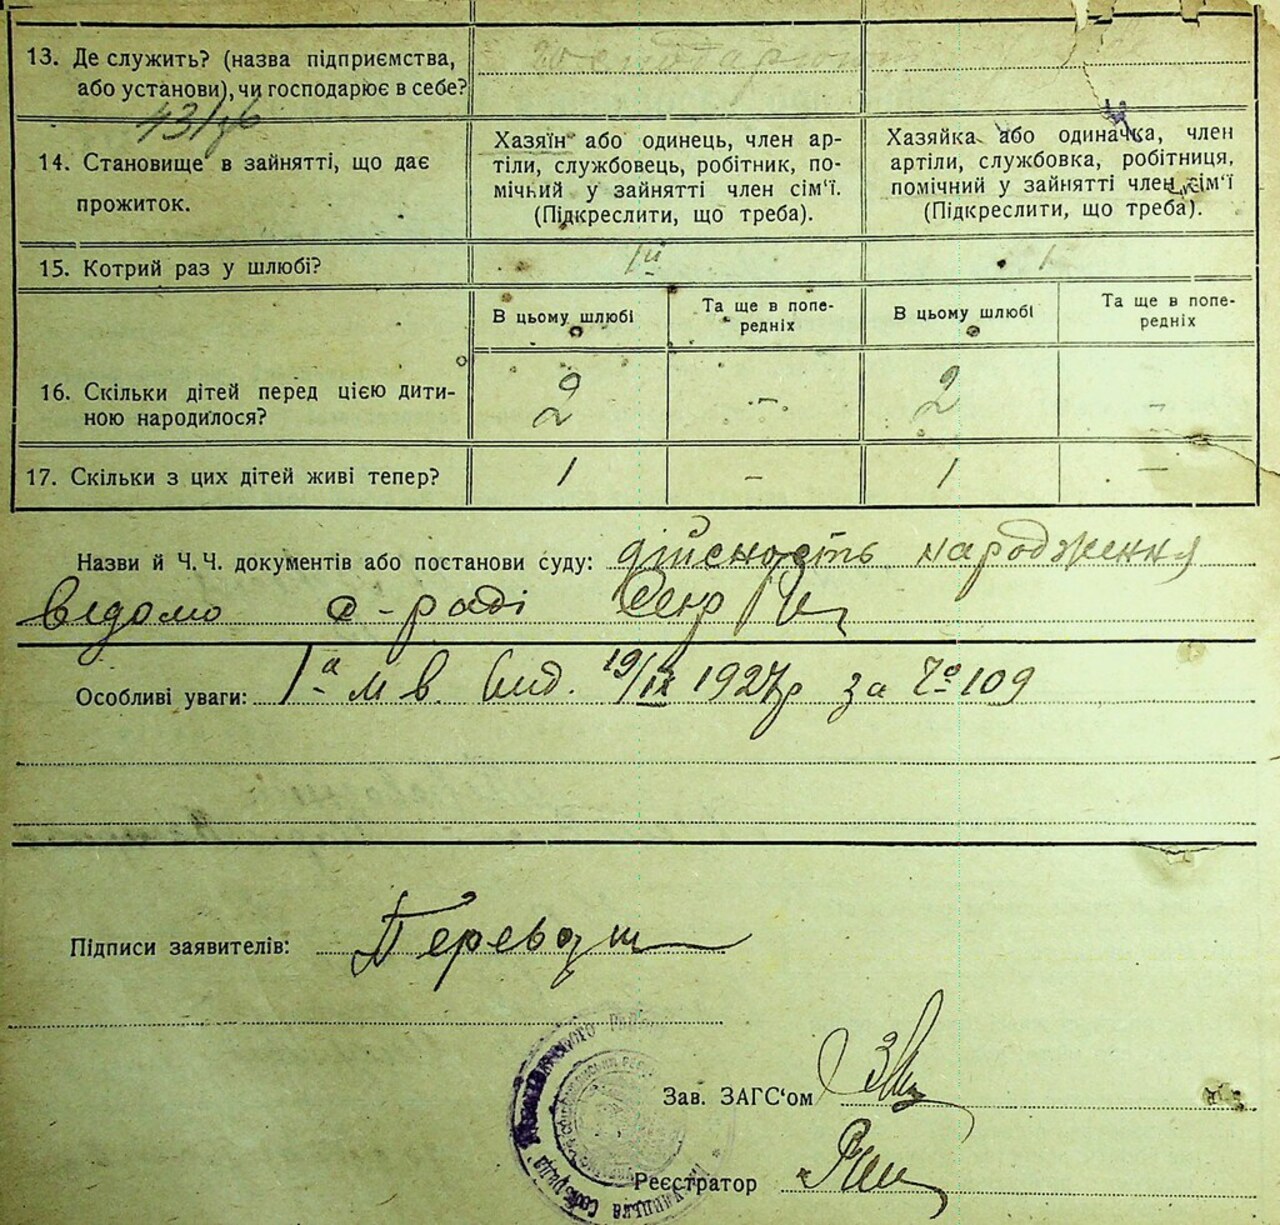 13. Де служить? (назва підприємства,
або установи), чи господарює в себе?
14. Становище в зайнятті, що дає
прожиток.
Хазяїн або одинець, член ар-
тіли, службовець, робітник, по-
мічний у зайнятті член сім'ї.
(Підкреслити, що треба).
Хазяйка або одиначка, член
артіли, службовка, робітниця,
помічний у зайнятті член сім'ї
(Підкреслити, що треба).
15. Котрий раз у шлюбі?
1й
1
В цьому шлюбі
Та ще в попе-
редніх
В цьому шлюбі
Та ще в попе-
редніх
16. Скільки дітей перед цією дити-
ною народилося?
2
-
2
-
17. Скільки з цих дітей живі тепер?
1
-
1
-
Назви й Ч. Ч. документів або постанови суду: дійсность народження
відомо с-раді Секр
Особливі уваги: 1а м в. вид. 19/IX 1927р за № 109
Підписи заявителів:
Зав. ЗАГС'ом
Реєстратор